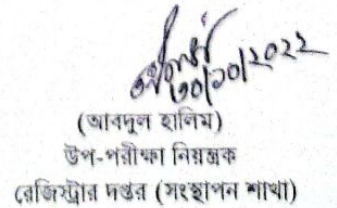 ৩০/১০/২০২২
(আবদুল হালিম)
উপ-পরীক্ষা নিয়ন্ত্রক
রেজিস্ট্রার দপ্তর (সংস্থাপন শাখা)